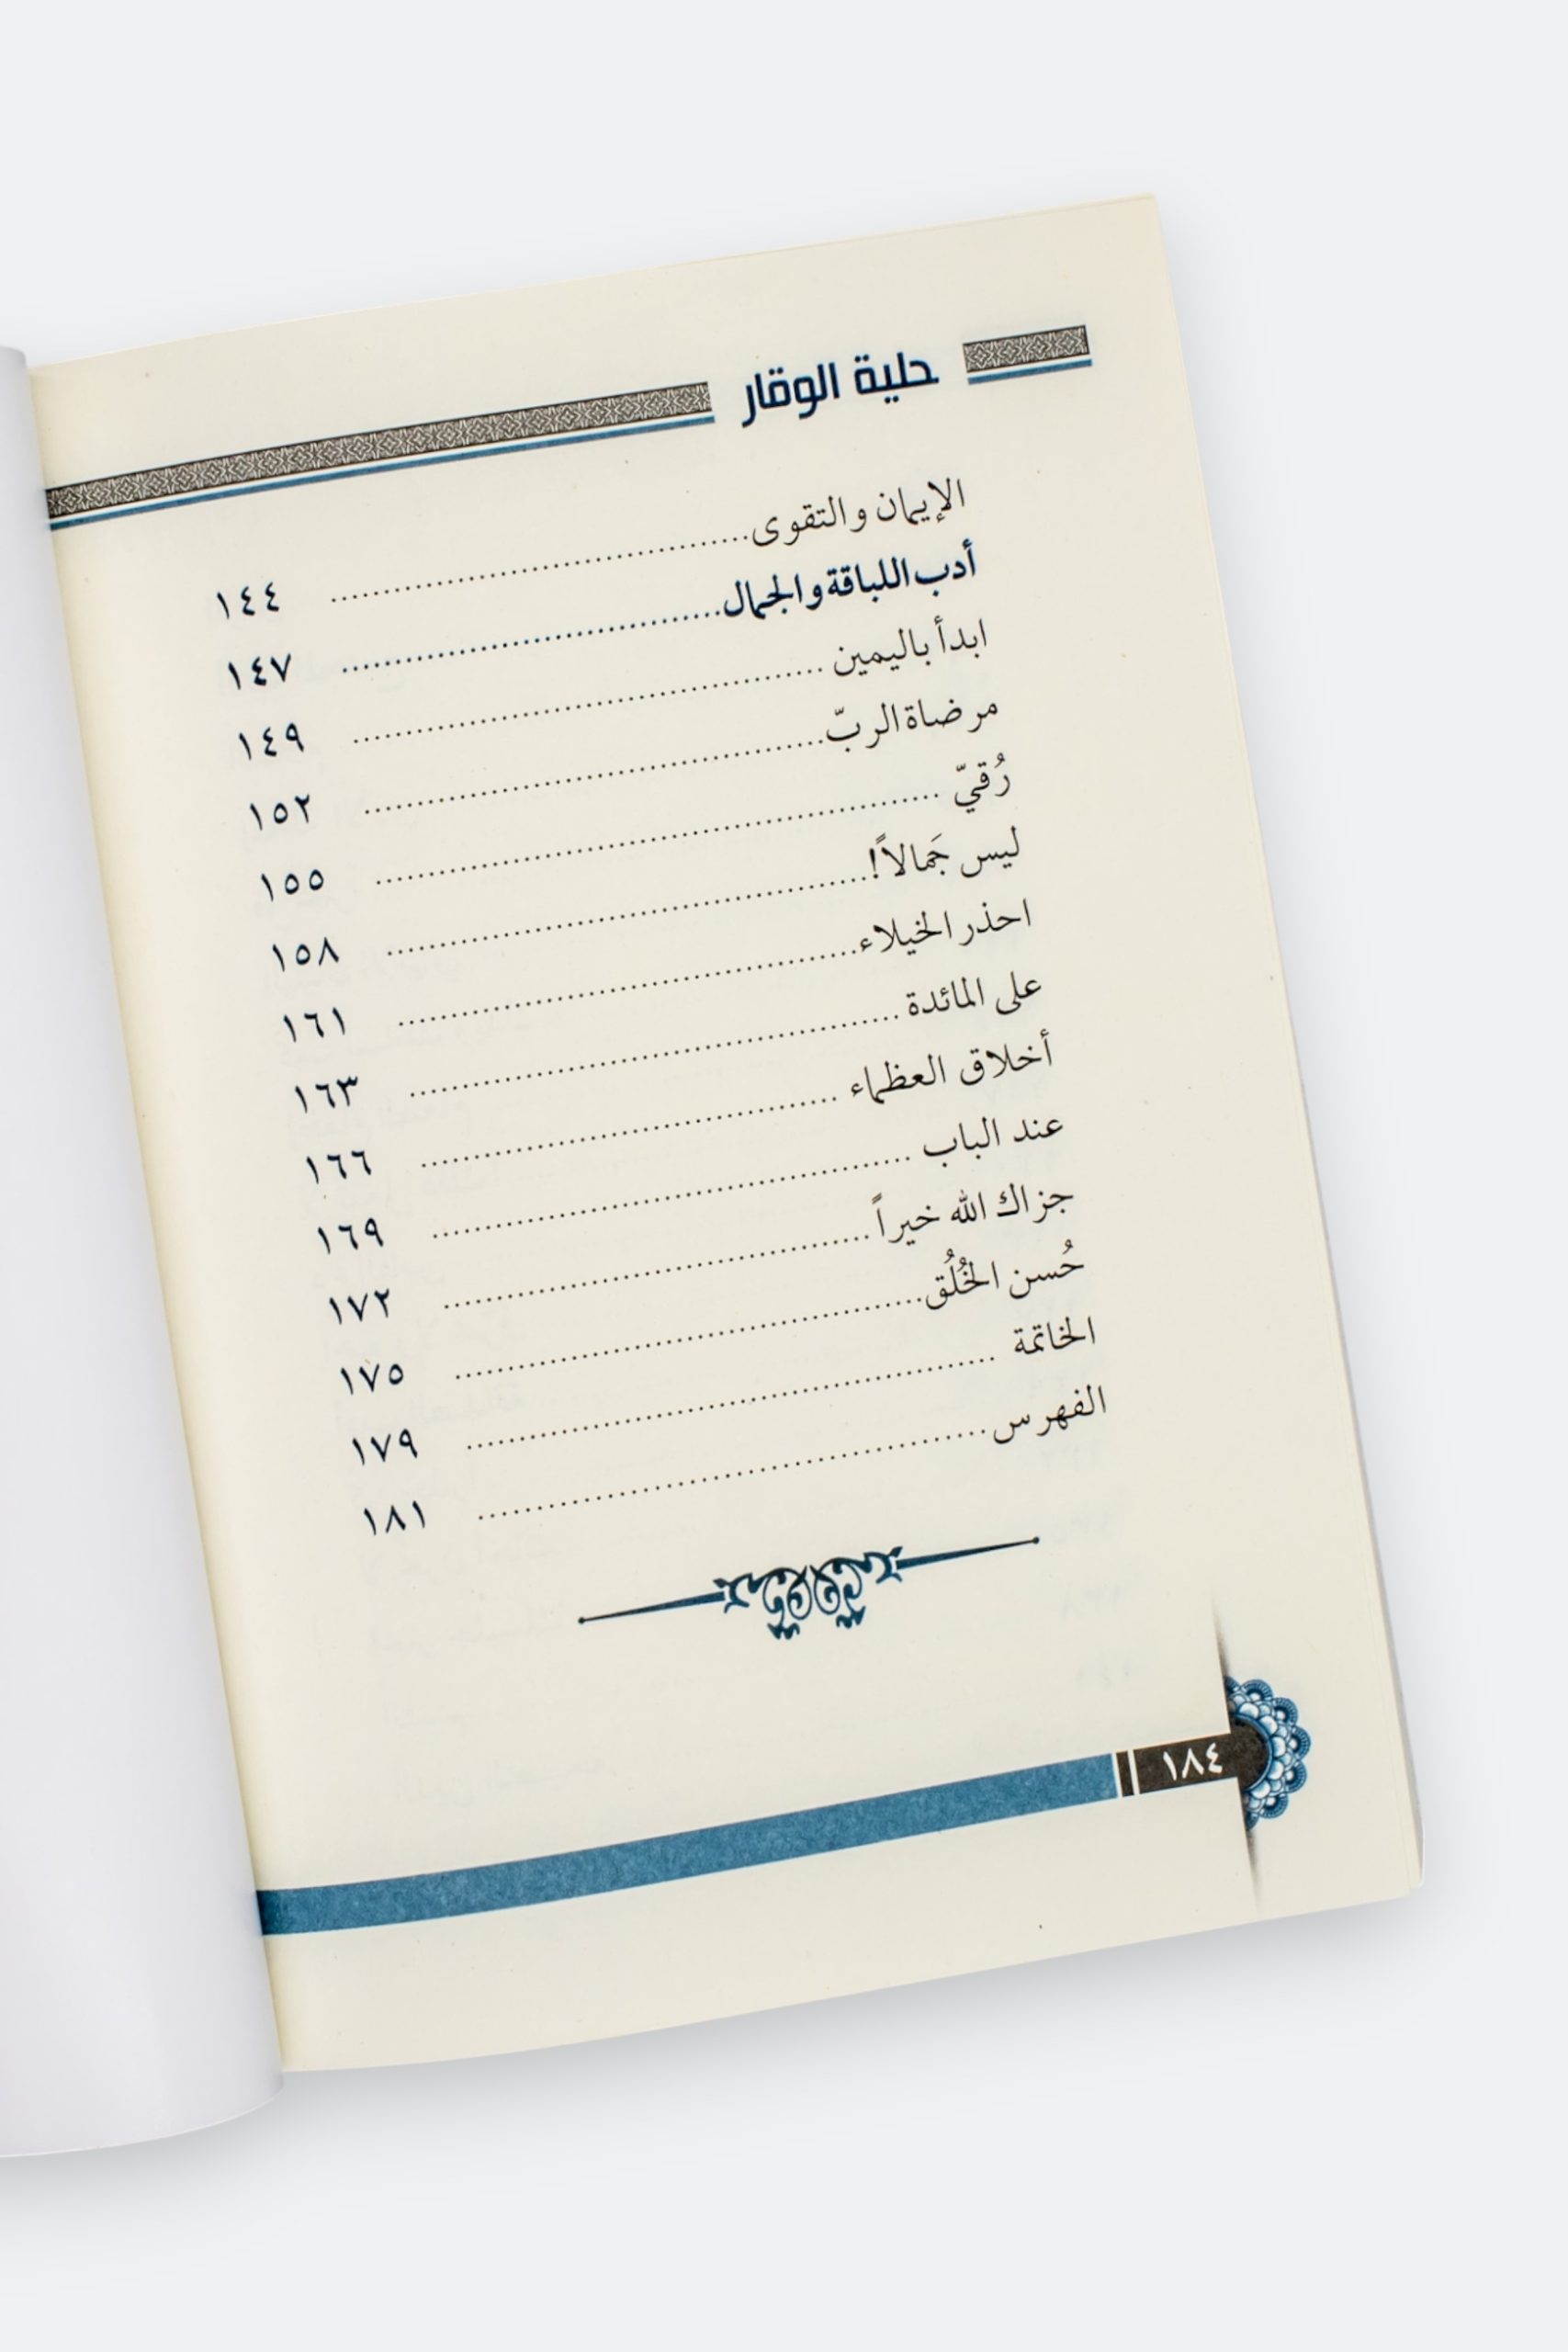 حلية الوقار
الإيمان والتقوى ........ ١٤٤
أدب اللباقة والجمال ........ ١٤٧
ابدأ باليمين ........ ١٤٩
مرضاة الربّ ........ ١٥٢
رُقيّ ........ ١٥٥
ليس جَمالاً! ........ ١٥٨
احذر الخيلاء ........ ١٦١
على المائدة ........ ١٦٣
أخلاق العظماء ........ ١٦٦
عند الباب ........ ١٦٩
جزاك الله خيراً ........ ١٧٢
حُسن الخُلُق ........ ١٧٥
الخاتمة ........ ١٧٩
الفهرس ........ ١٨١
١٨٤